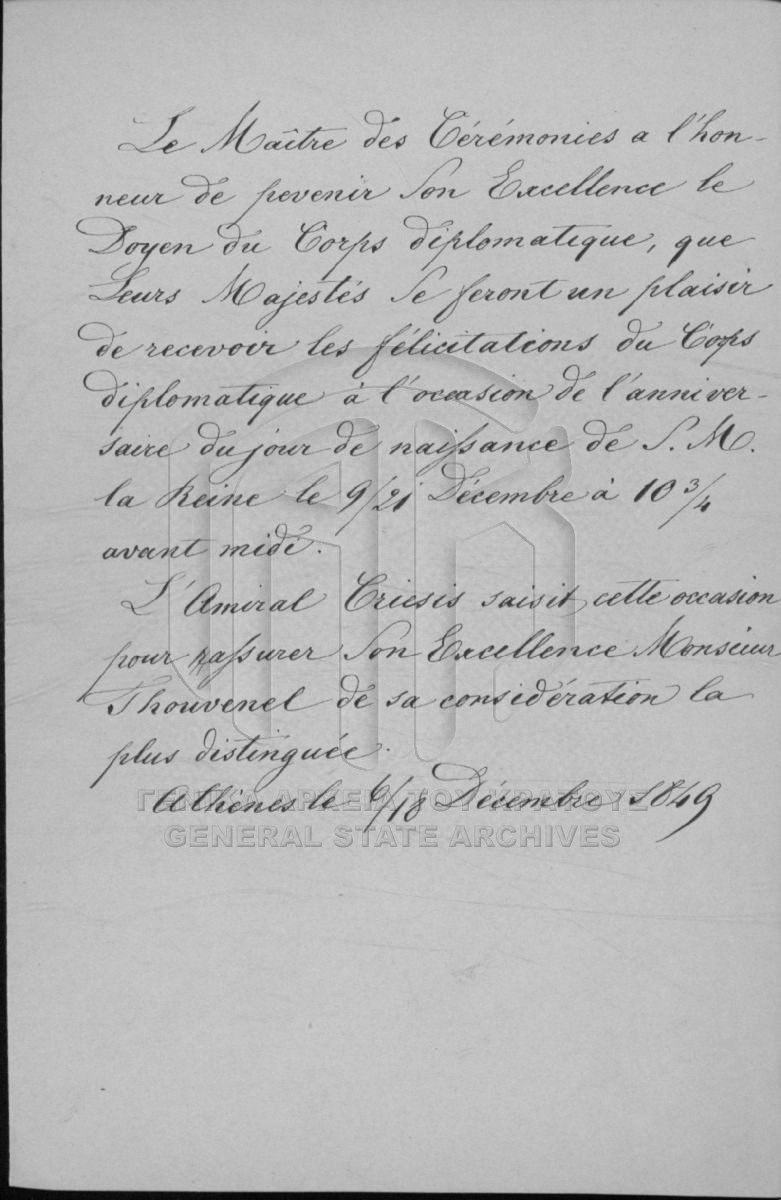 Le Maître des Cérémonies a l'hon-
neur de pevenir Son Excellence le
Doyen du Corps diplomatique, que
Leurs Majestés se feront un plaisir
de recevoir les félicitations du Corps
diplomatique à l'occasion de l'anniver-
saire du jour de naissance de S. M.
la Reine le 9/21 Décembre à 10 3/4
avant midi.
L'Amiral Criesis saisit cette occasion
pour rassurer Son Excellence Monsieur
Thouvenel de sa considération la
plus distinguée.
Athènes le 6/18 Décembre 1849
ΓΕΝΙΚΑ ΑΡΧΕΙΑ ΤΟΥ ΚΡΑΤΟΥΣ
GENERAL STATE ARCHIVES